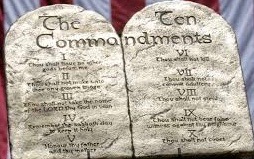 The Ten
Commandments
Thou shalt have no other
gods before me
II
Thou shalt not make unto
thee any graven image
III
Thou shalt not take the name
of the LORD thy God in vain
IV
Remember the sabbath day
to keep it holy
V
Honour thy father
and thy mother
VI
Thou shalt not kill
VII
Thou shalt not
commit adultery
VIII
Thou shalt not steal
IX
Thou shalt not bear false
witness against thy neighbour
Thou shalt not covet